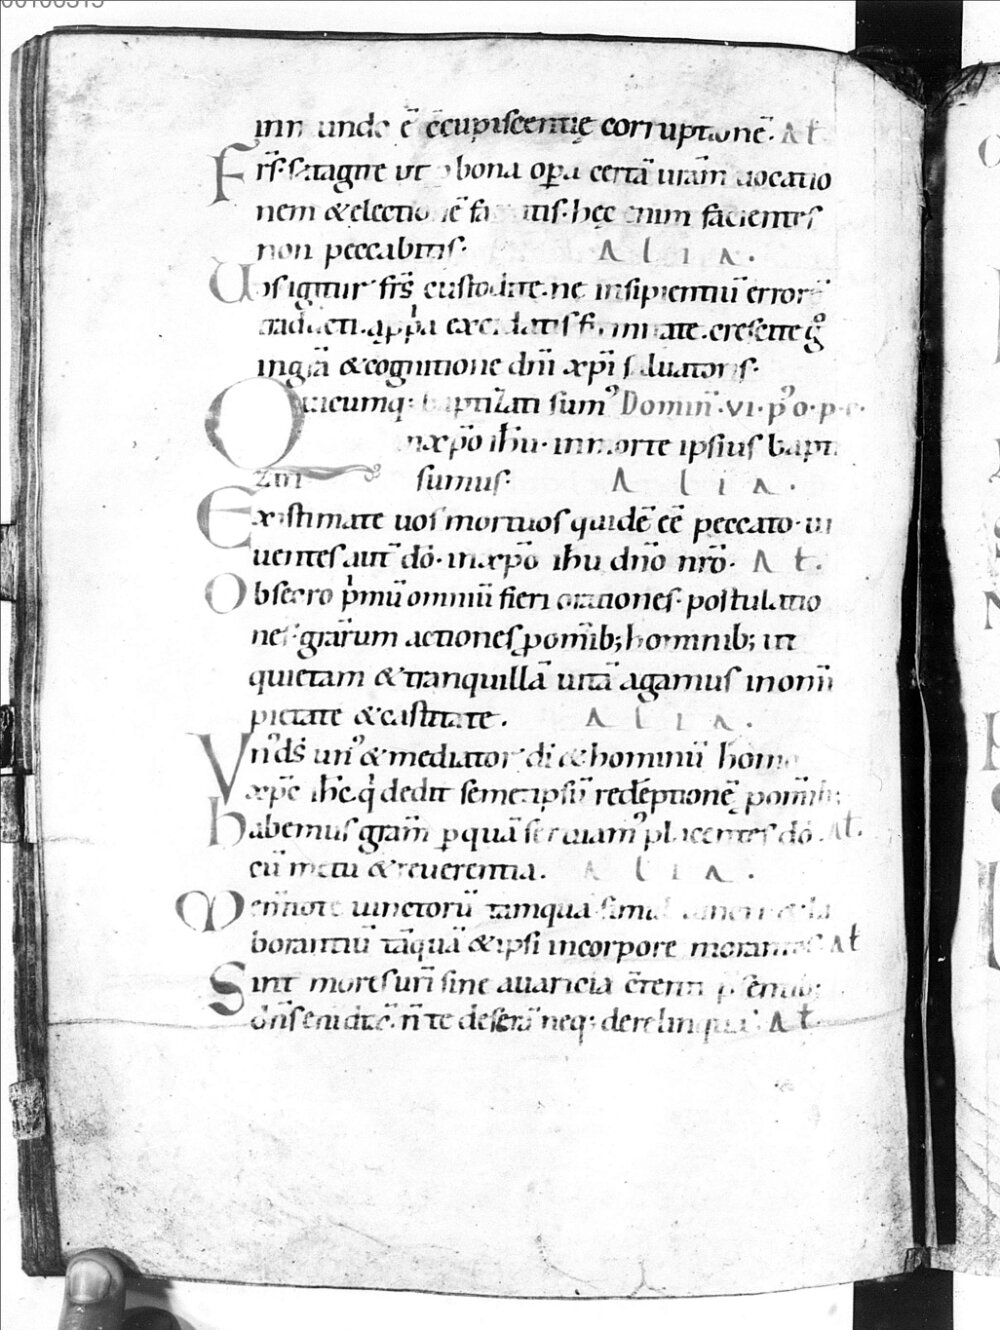 in mundo ē c̄cupiscentię corruptionē. At
Frs̄ satagite ut p bona opa certā urām uocatio
nem & electionē faciatis. hęc enim facientes
non peccabitis. Alia.
Uos igitur frs̄ custodite. ne insipientiū errorē
traducti. appa excidatis firmitate. crescite g̊
in grā & cognitione dn̄i xp̄i saluatoris.
Quicumq; baptizati sum' Domin̄. vi. p' o. p.
in xp̄o ih̄u. in morte ipsius bapti
zati sumus. Alia.
Existimate uos mortuos quidē eē peccato. ui
uentes aut̄ dō. in xp̄o ih̄u dn̄o nr̄o. At.
Obsecro pmū omniū fieri orationes. postulatio
nes. grārum actiones p om̄ib; hominib; ut
quietam & tranquillā uitā agamus in om̄i
pietate & castitate. Alia.
Vn' ds̄ un' & mediator di & hominū homo
xp̄c ih̄c. q dedit semetipsū redēptionē p om̄ib;
habemus grām p quā seruiam' placentes dō. At.
cū metu & reuerentia. Alia.
Mem̄tote uinctorū tamquā simul uincti & la
borantiū tāquā & ipsi in corpore morantes. At
Sint mores uri sine auaricia c̄tenti psentib;
dn̄s eni dic̄. n̄ te deserā neq; derelinquā. At.